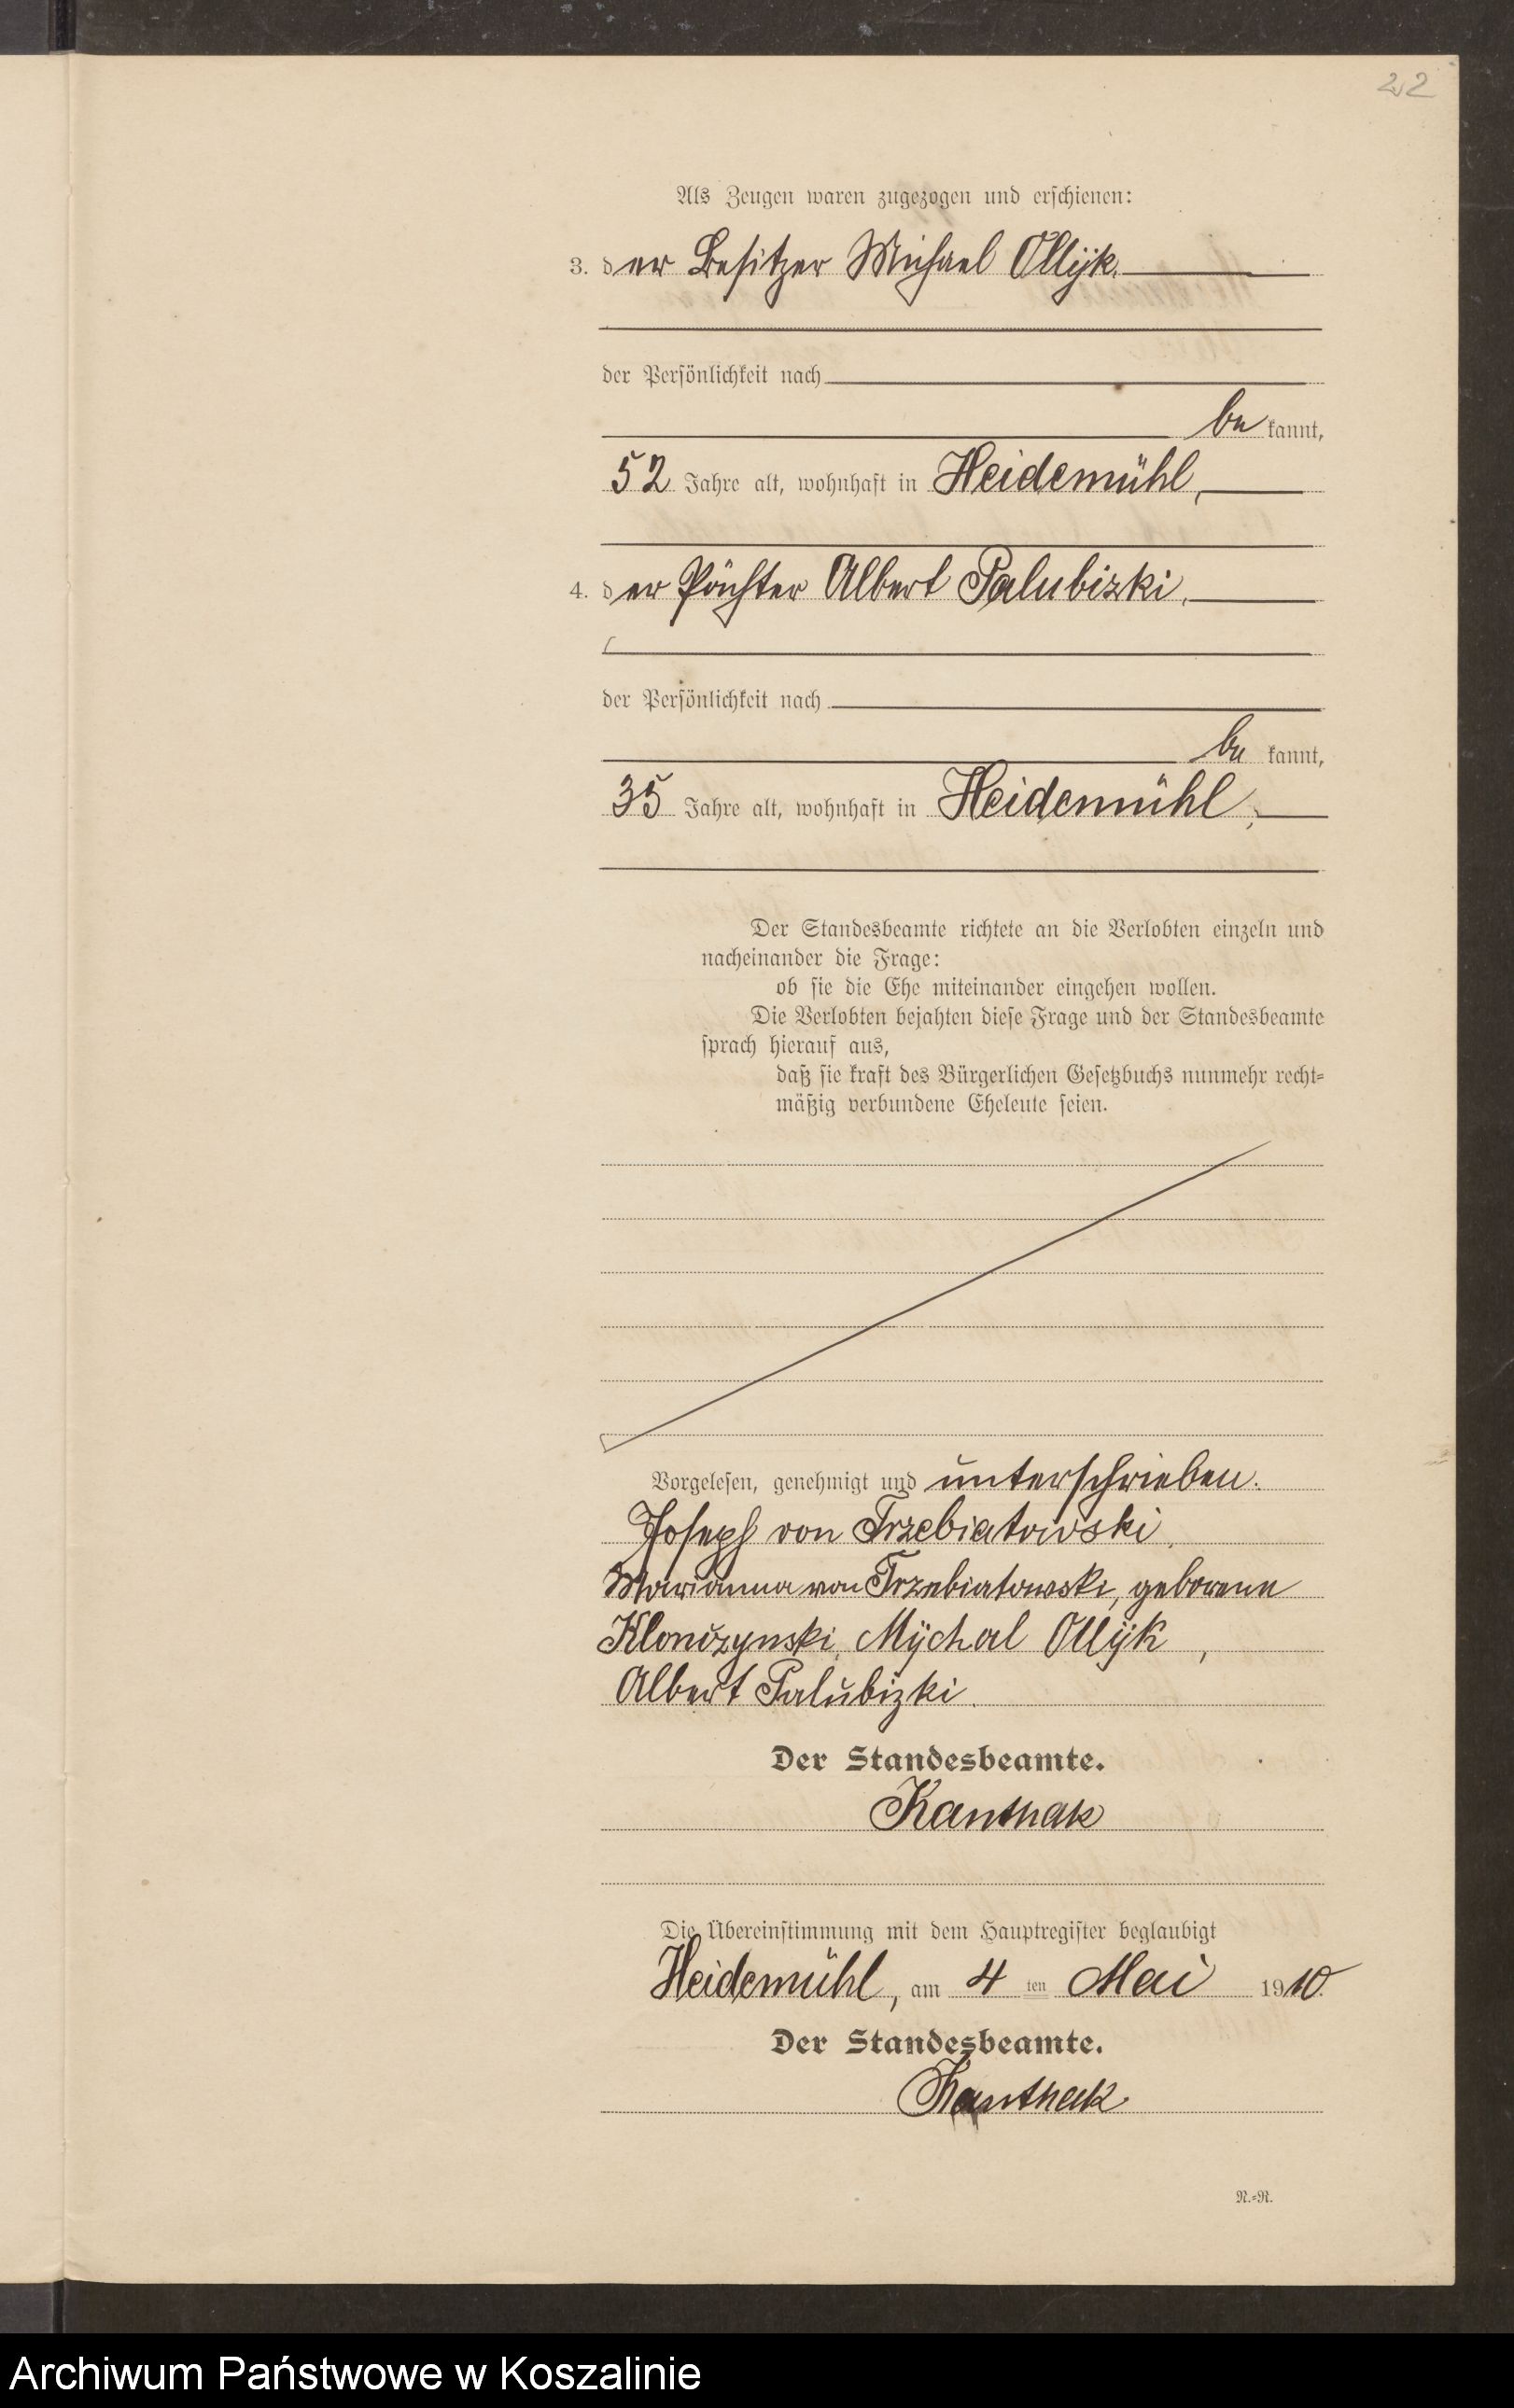 22
Als Zeugen waren zugezogen und erschienen:
3. der Besitzer Michael Ollÿk.
der Persönlichkeit nach
be kannt,
52 Jahre alt, wohnhaft in Heidemühl,
4. der Pächter Albert Palubizki,
der Persönlichkeit nach
be kannt,
35 Jahre alt, wohnhaft in Heidemühl,
Der Standesbeamte richtete an die Verlobten einzeln und
nacheinander die Frage:
ob sie die Ehe miteinander eingehen wollen.
Die Verlobten bejahten diese Frage und der Standesbeamte
sprach hierauf aus,
daß sie kraft des Bürgerlichen Gesetzbuchs nunmehr recht-
mäßig verbundene Eheleute seien.
Vorgelesen, genehmigt und unterschrieben.
Joseph von Trzebiatowski,
Marianna von Trzebiatowski, geborene
Klonczynski, Mÿchal Ollÿk,
Albert Palubizki.
Der Standesbeamte.
Kanthak
Die Übereinstimmung mit dem Hauptregister beglaubigt
Heidemühl, am 4 ten Mai 1910.
Der Standesbeamte.
Kanthak
N.-R.
Archiwum Państwowe w Koszalinie